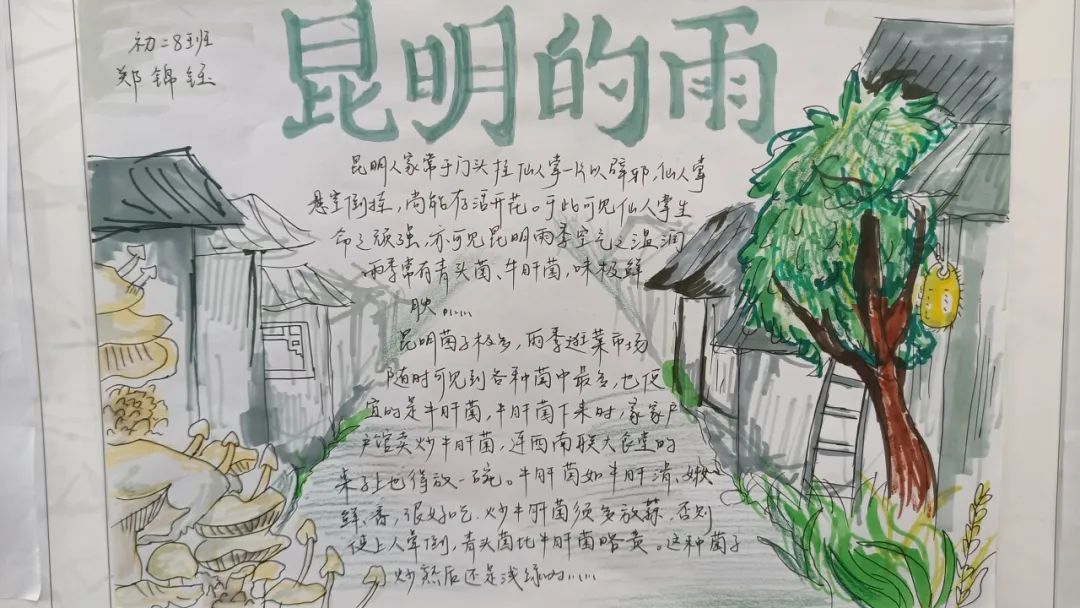 初二8班
郑锦钰
昆明的雨
昆明人家常于门头挂仙人掌一片以辟邪,仙人掌
悬空倒挂,尚能存活开花。于此可见仙人掌生
命之顽强,亦可见昆明雨季空气之湿润
雨季常有青头菌、牛肝菌,味极鲜
腴……
昆明菌子极多,雨季逛菜市场
随时可见到各种菌中最多,也便
宜的是牛肝菌,牛肝菌下来时,家家户
户馆卖炒牛肝菌,连西南联大食堂的
桌子上也得放一碗。牛肝菌如牛肝滑、嫩
鲜、香,很好吃.炒牛肝菌须多放蒜,否则
使上人晕倒,青头菌比牛肝菌略贵。这种菌子
炒熟后还是浅绿的……